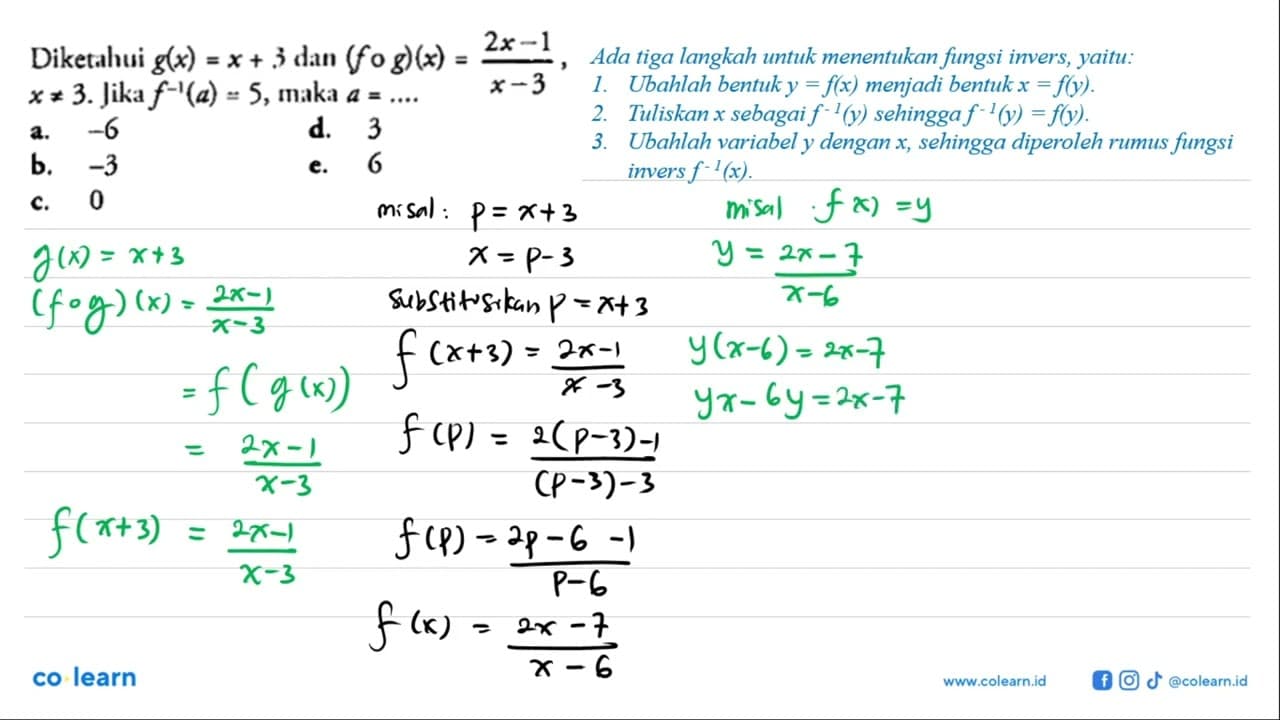 Diketahui g(x) = x + 3 dan (f o g)(x) = (2x-1)/(x-3),
x ≠ 3. Jika f⁻¹(a) = 5, maka a = ....
a. -6
b. -3
c. 0
d. 3
e. 6
Ada tiga langkah untuk menentukan fungsi invers, yaitu:
1. Ubahlah bentuk y = f(x) menjadi bentuk x = f(y).
2. Tuliskan x sebagai f⁻¹(y) sehingga f⁻¹(y) = f(y).
3. Ubahlah variabel y dengan x, sehingga diperoleh rumus fungsi
invers f⁻¹(x).
g(x) = x+3
(f∘g)(x) = (2x-1)/(x-3)
= f(g(x))
= (2x-1)/(x-3)
f(x+3) = (2x-1)/(x-3)
misal: p = x+3
x = p-3
substitusikan p = x+3
f(x+3) = (2x-1)/(x-3)
f(p) = (2(p-3)-1)/((p-3)-3)
f(p) = (2p-6-1)/(p-6)
f(x) = (2x-7)/(x-6)
misal f x) = y
y = (2x-7)/(x-6)
y(x-6) = 2x-7
yx-6y = 2x-7
co learn
www.colearn.id
@colearn.id